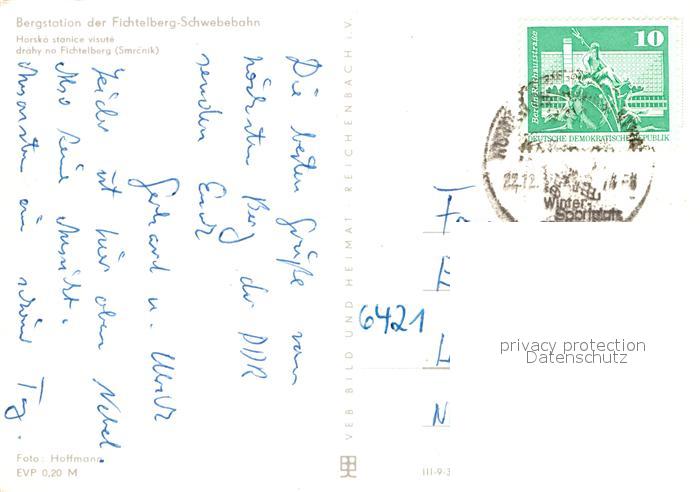 Bergstation der Fichtelberg-Schwebebahn
Horská stanice visuté
dráhy na Fichtelberg (Smrčník)
Die besten Grüße vom
höchsten Berg der DDR
senden Euch
Gerhard u. Ulrich
Leider ist hier oben Nebel.
Also keine Aussicht.
Ansonsten ein schöner Tag.
Foto: Hoffmann
EVP 0,20 M
VEB BILD UND HEIMAT REICHENBACH i.V.
III-9-3
10
Berlin, Rathausstraße
DEUTSCHE DEMOKRATISCHE REPUBLIK
22.12.
Winter-
Sportplatz
6421
privacy protection
Datenschutz